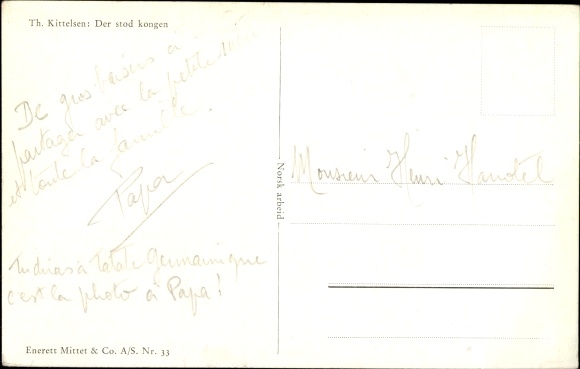 Th. Kittelsen: Der stod kongen
De gros baisers à
partager avec la petite mère
et toute la famille.
Papa
Tu diras à tatate Germaine que
c'est la photo à Papa!
Norsk arbeid
Monsieur Henri Hanotel
Enerett Mittet & Co. A/S. Nr. 33